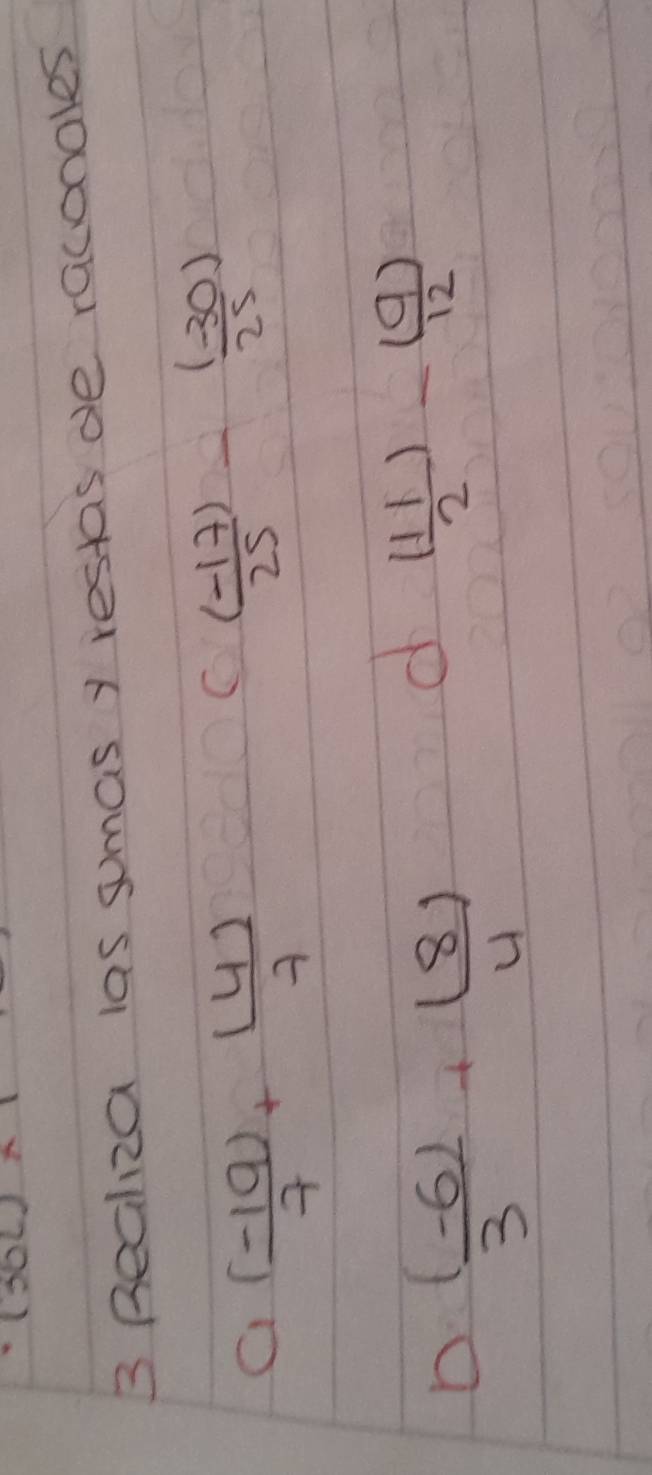 3 Realiza las sumas y restas de racionales
a (-19)/7 + (4)/7 c (-17)/25 - (-30)/25
b (-6)/3 + (8)/4 d (11)/2 - (9)/12